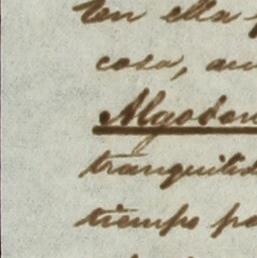 En ella
cosa, au
Algodon
tranquilid
tiempo pa